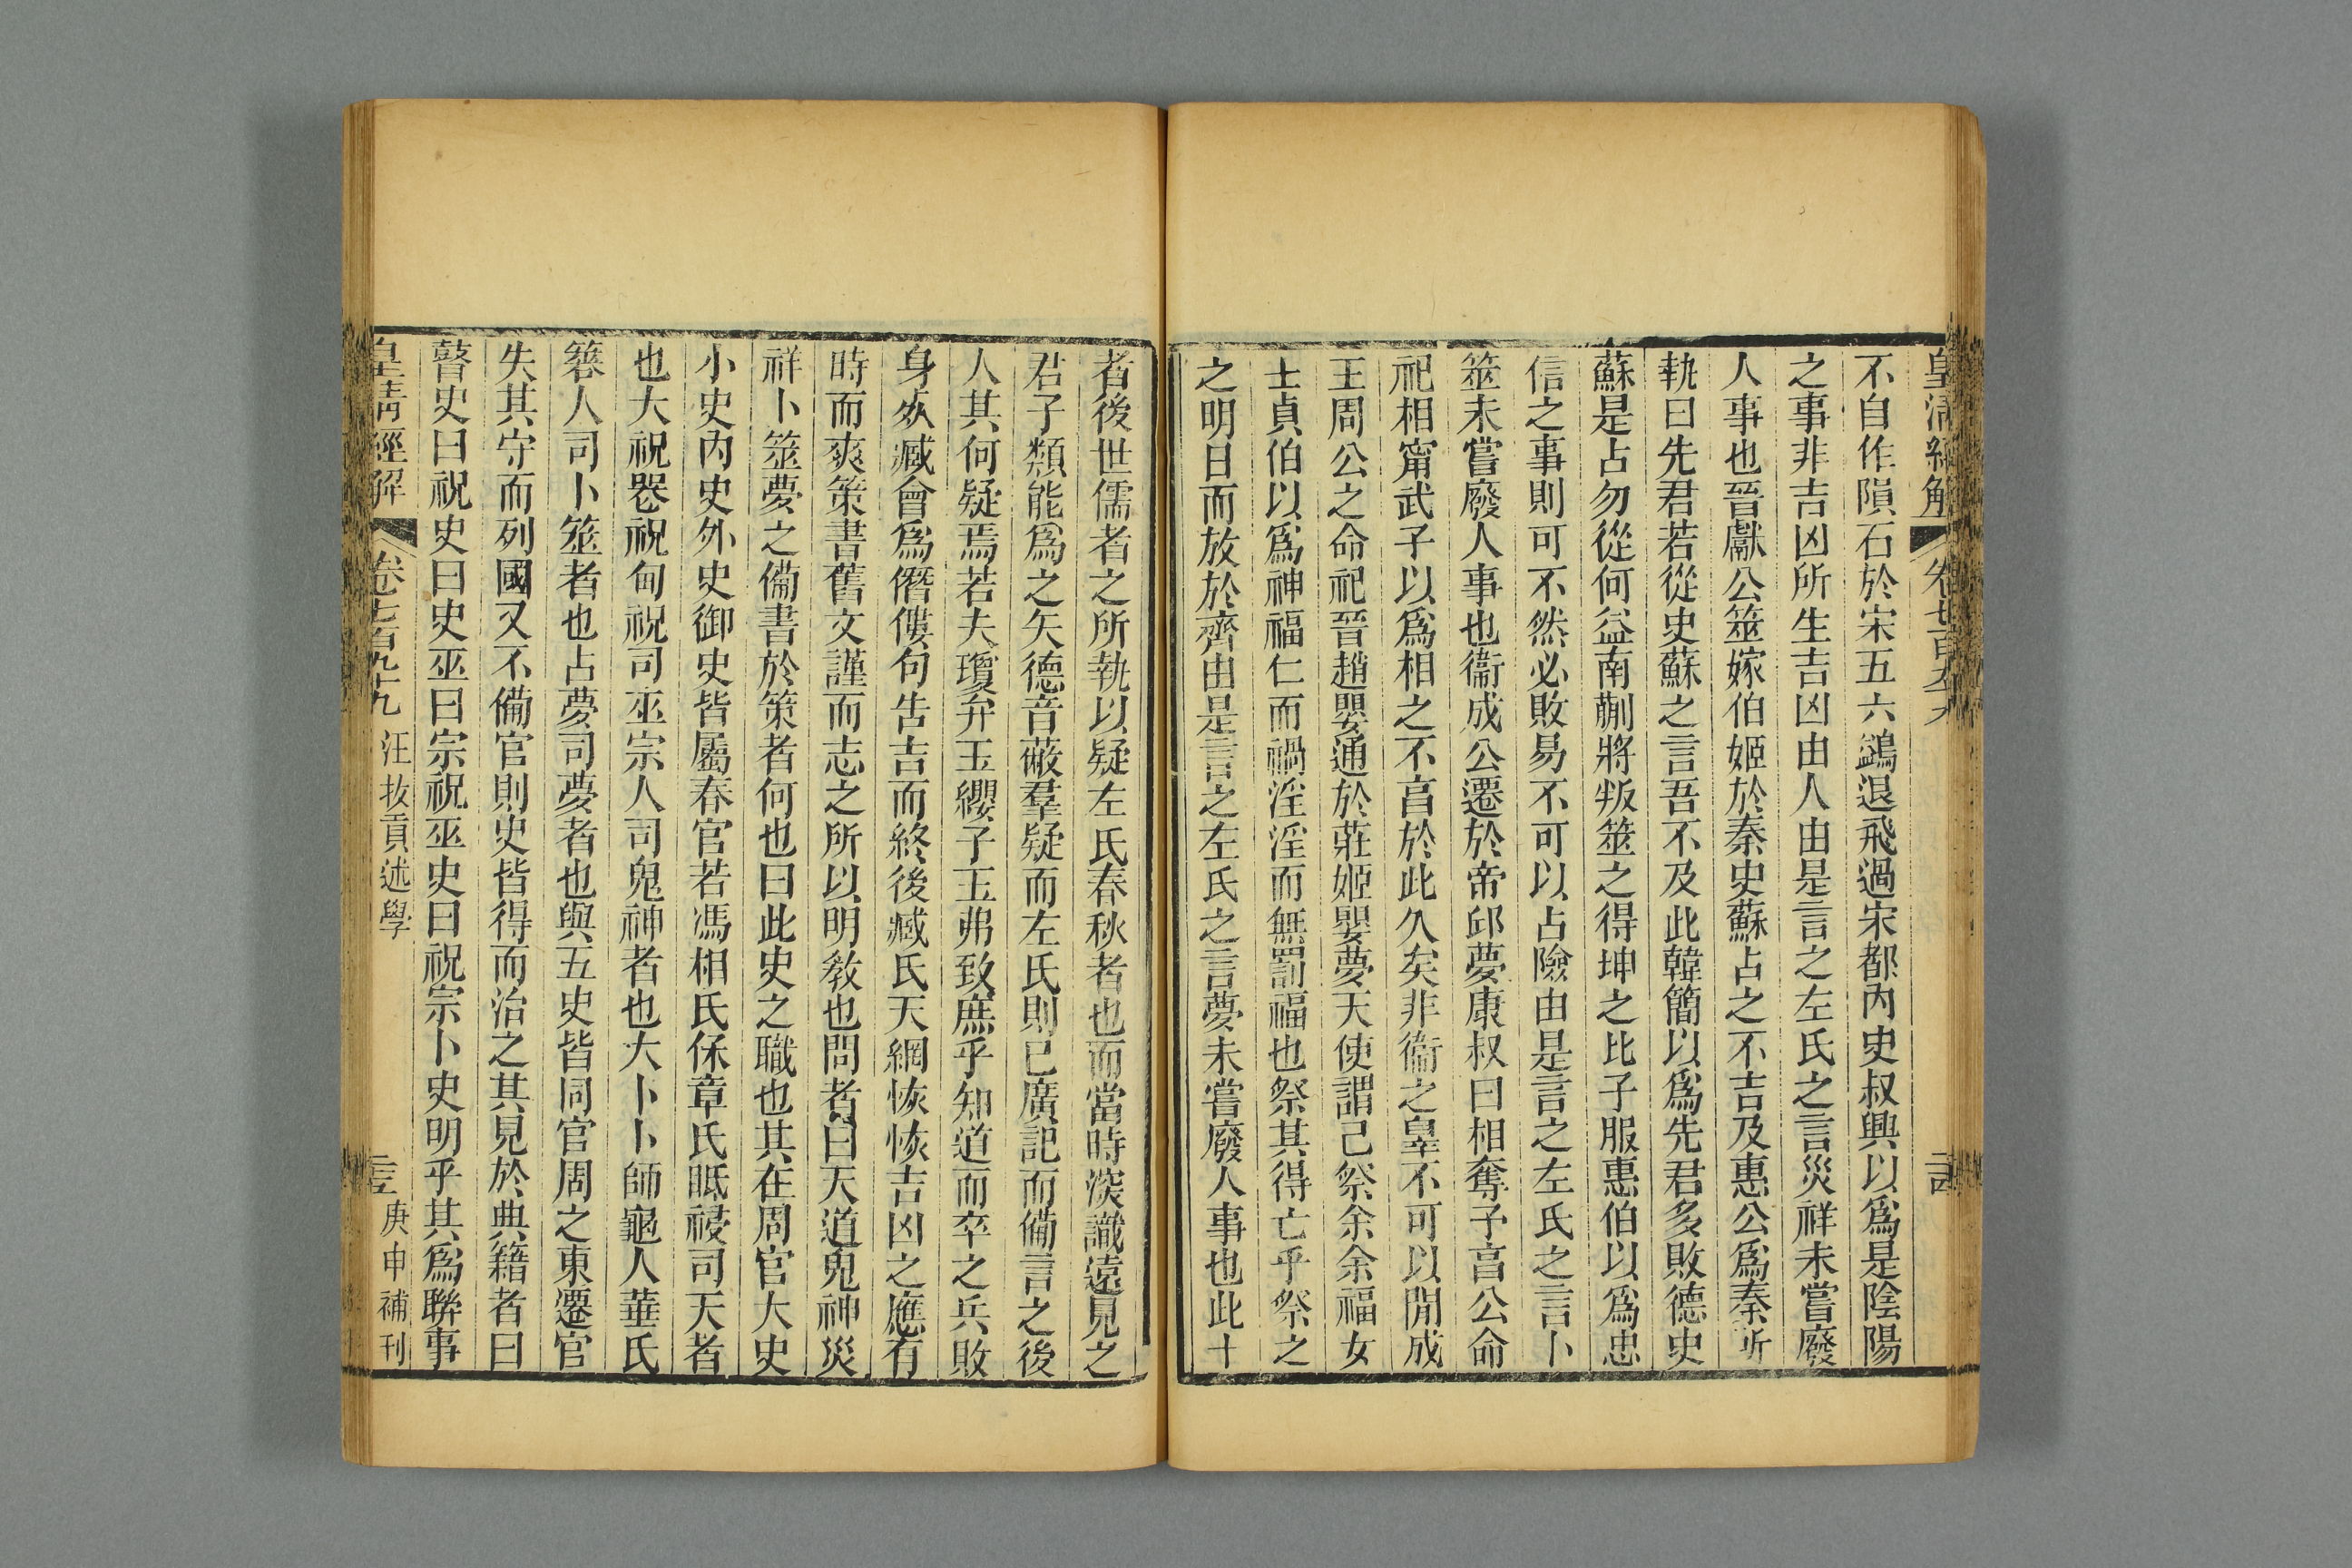 皇清經解
不自作隕石於宋五六鷁退飛過宋都內史叔興以爲是陰陽
之事非吉凶所生吉凶由人由是言之左氏之言災祥未嘗廢
人事也晉獻公筮嫁伯姬於秦史蘇占之不吉及惠公爲秦所
執曰先君若從史蘇之言吾不及此韓簡以爲先君多敗德史
蘇是占勿從何益南蒯將叛筮之得坤之比子服惠伯以爲忠
信之事則可不然必敗易不可以占險由是言之左氏之言卜
筮未嘗廢人事也衞成公遷於帝邱夢康叔曰相奪予亯公命
祀相甯武子以爲相之不亯於此久矣非衞之辠不可以閒成
王周公之命祀晉趙嬰通於莊姬嬰夢天使謂己祭余余福女
士貞伯以爲神福仁而禍淫淫而無罰福也祭其得亡乎祭之
之明日而放於齊由是言之左氏之言夢未嘗廢人事也此十
者後世儒者之所執以疑左氏春秋者也而當時深識遠見之
君子類能爲之矢德音蔽羣疑而左氏則已廣記而備言之後
人其何疑焉若夫瓊弁玉纓子玉弗致庶乎知道而卒之兵敗
身死臧會爲僭僂句告吉而終後臧氏天網恢恢吉凶之應有
時而爽策書舊文謹而志之所以明敎也問者曰天道鬼神災
祥卜筮夢之備書於策者何也曰此史之職也其在周官大史
小史內史外史御史皆屬春官若馮相氏保章氏眡祲司天者
也大祝喪祝甸祝司巫宗人司鬼神者也大卜卜師龜人菙氏
簭人司卜筮者也占夢司夢者也與五史皆同官周之東遷官
失其守而列國又不備官則史皆得而治之其見於典籍者曰
瞽史曰祝史曰史巫曰宗祝巫史曰祝宗卜史明乎其爲聯事
皇清經解 卷七百九十九 汪拔貢述學 庚申補刊